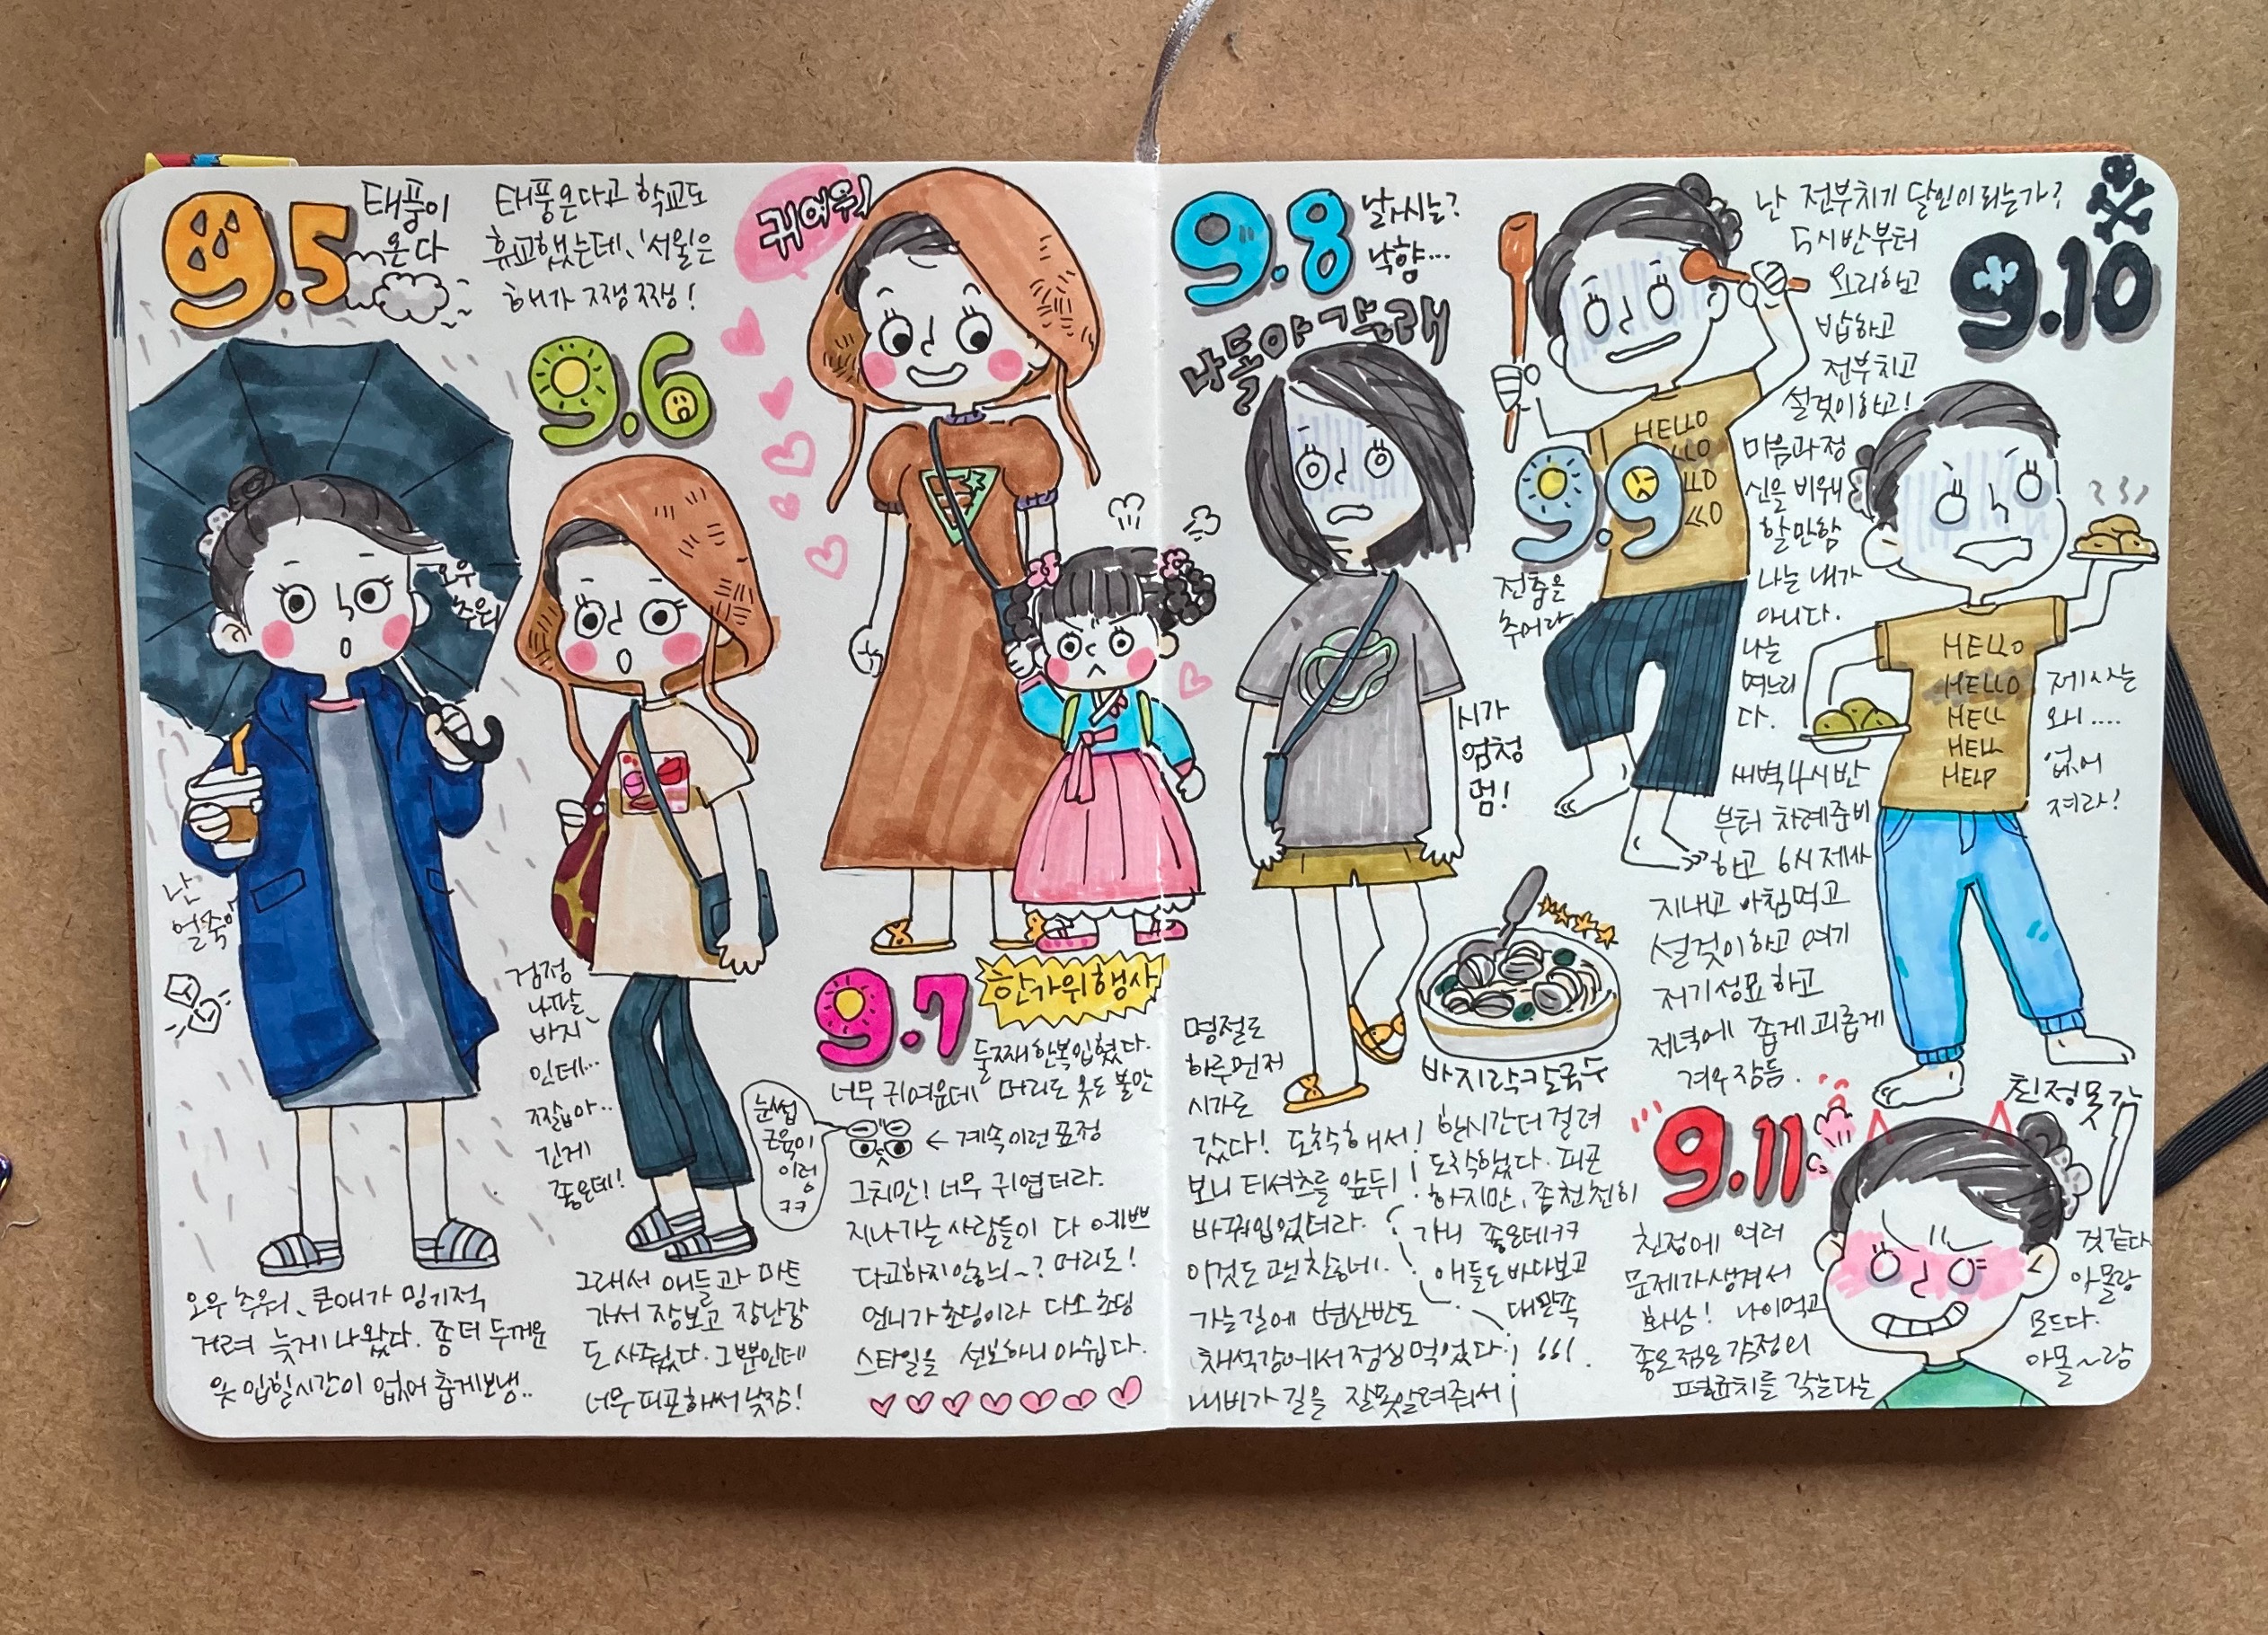 9.5
태풍이
온다
오우
추워
난
얼죽아
오우 추워, 큰애가 밍기적
거려 늦게 나왔다. 좀더 두꺼운
옷 입힐시간이 없어 춥게보냉..
태풍온다고 학교도
휴교했는데, '서울'은
해가 쨍쨍!
9.6
검정
나팔
바지
인데...
짧아..
긴게
좋은데!
그래서 애들과 마트
가서 장보고 장난감
도 사주었다. 그뿐인데
너무피곤해써 낮잠!
귀여워
9.7
한가위행사
둘째한복입혔다.
너무 귀여운데 머리도 옷도 불만
← 계속이런표정
눈썹
근육이
이렁
ㅋㅋ
그치만! 너무 귀엽더라.
지나가는사람들이 다 예쁘
다고하지안하늬~? 머리도!
언니가초딩이라 다소 초딩
스타일을 선보하니아쉽다.
9.8
날씨는?
낙향...
나돌아갈래
시가
엄청
멈!
바지락칼국수
명절도
하루먼저
시가로
갔다! 도착해서
보니 티셔츠를 앞뒤
바꿔입었더라.
이것도 괜찮네.
가는길에 변산반도
채석강에서점심먹었다.
네비가 길을 잘못알려줘서
한시간더걸려
도착했다. 피곤
하지만, 좀천천히
가니 좋은데ㅋㅋ
애들도바다보고
대만족
666.
9.9
HELLO
LLO
LLO
LLO
전춤은
추어라
난 전부치기 달인이되는가?
5시반부터
요리하고
밥하고
전부치고
설겆이하고!
마음과정
신을 비워
할만함
나는 내가
아니다.
나는
며느리
다.
9.10
HELLO
HELLO
HELL
HELL
HELP
제사는
왜....
없어
져라!
새벽4시반
부터 차례준비
하고 6시제사
지내고 아침먹고
설겆이하고 여기
저기성묘하고
저녁에 좁게괴롭게
겨우잠듬.
9.11
친정못감
친정에 여러
문제가생겨서
화남! 나이먹고
좋은점은 감정의
평균치를 갖는다는
것같다
아몰랑
모드다.
아몰~랑